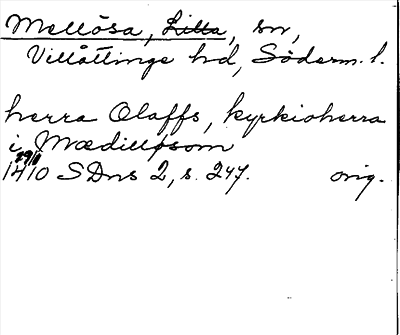 Mellösa, Lilla, sn,
Villåttinge hd, Söderm. l.
herra Olaffs, kyrkioherra
i Mædilløsom
1410 29/11 SDns 2, s. 247. orig.